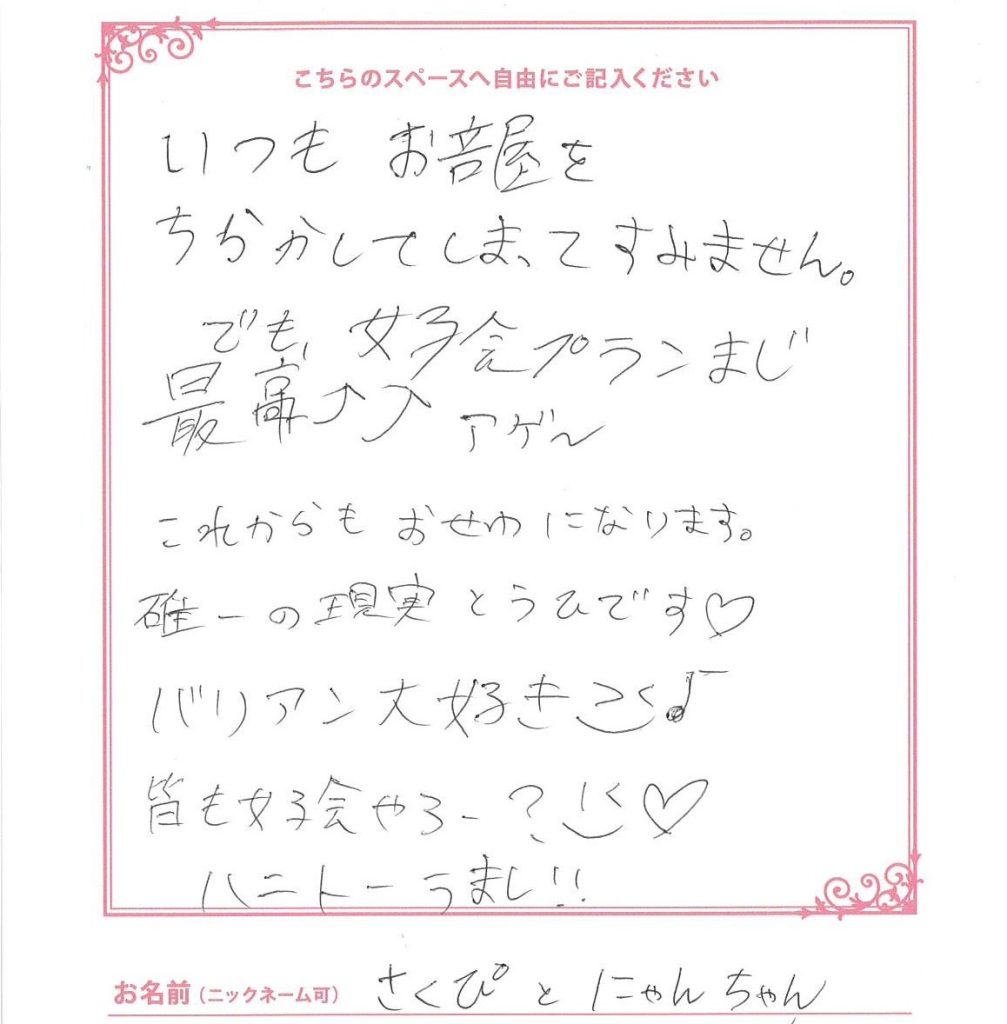 こちらのスペースへ自由にご記入ください
いつも お部屋を
ちらかしてしまってすみません。
でも、女子会プランまじ
最高⤴⤴ アゲ〜
これからも おせわになります。
確一の現実とうひです♡
バリアン大好き ♪
皆も女子会やろー? ♡
ハニトーうまし!!
お名前(ニックネーム可) さくぴと にゃんちゃん